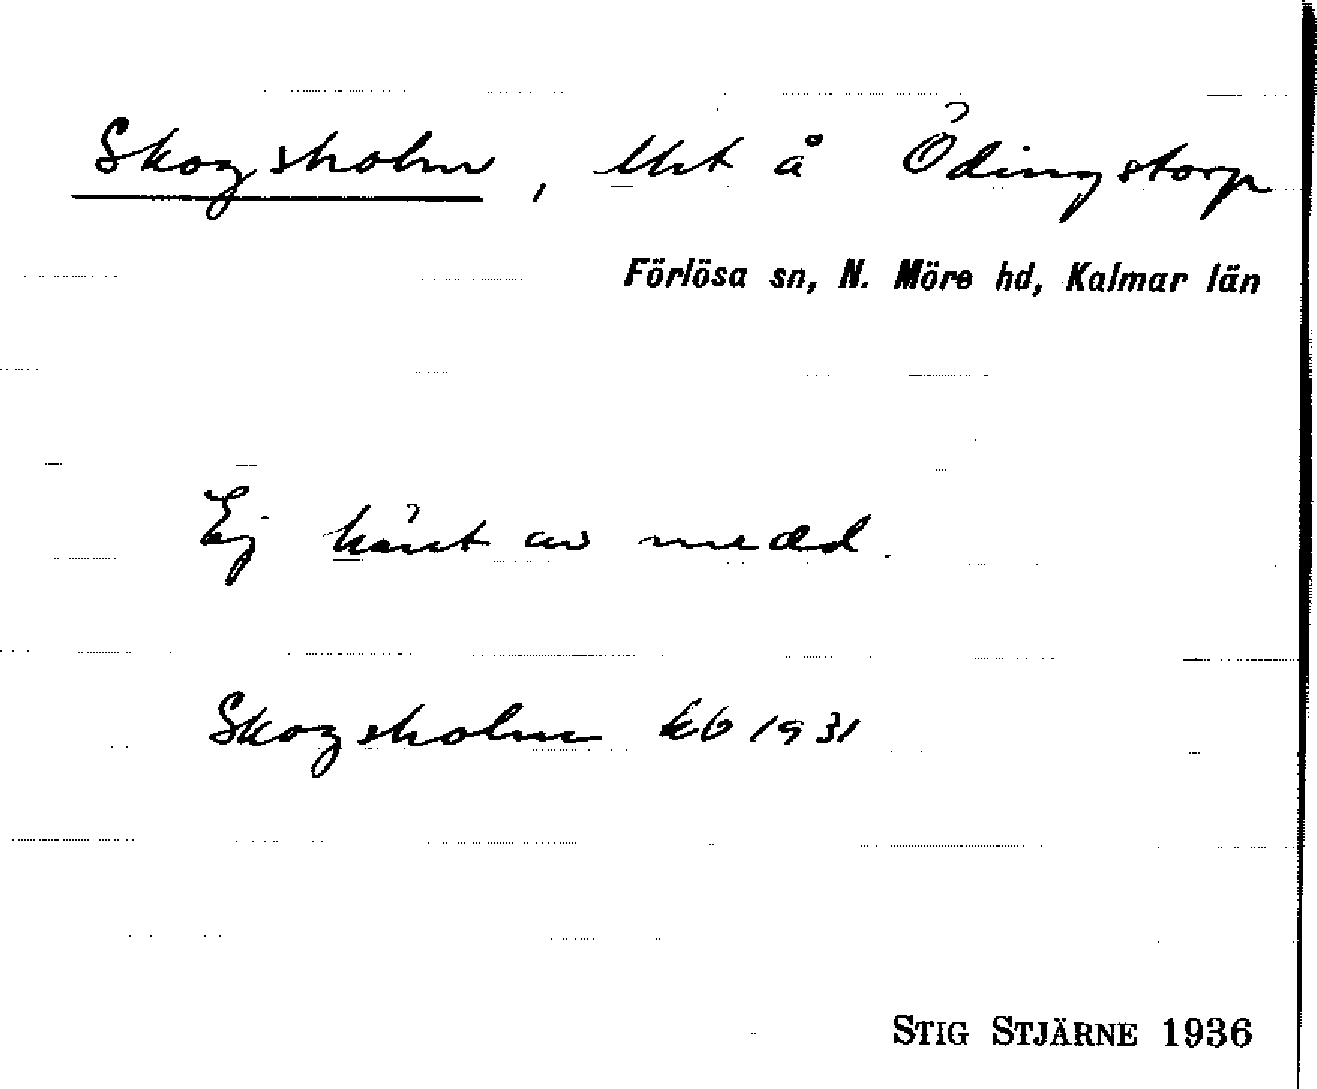 Skogsholm, lht å Ödingstorp
Förlösa sn, N. Möre hd, Kalmar län
Ej känt av medd.
Skogsholm kb 1931
STIG STJÄRNE 1936